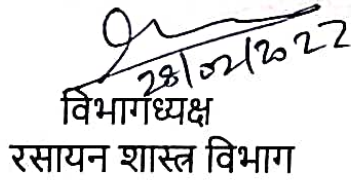 28/02/2022
विभागध्यक्ष
रसायन शास्त्र विभाग